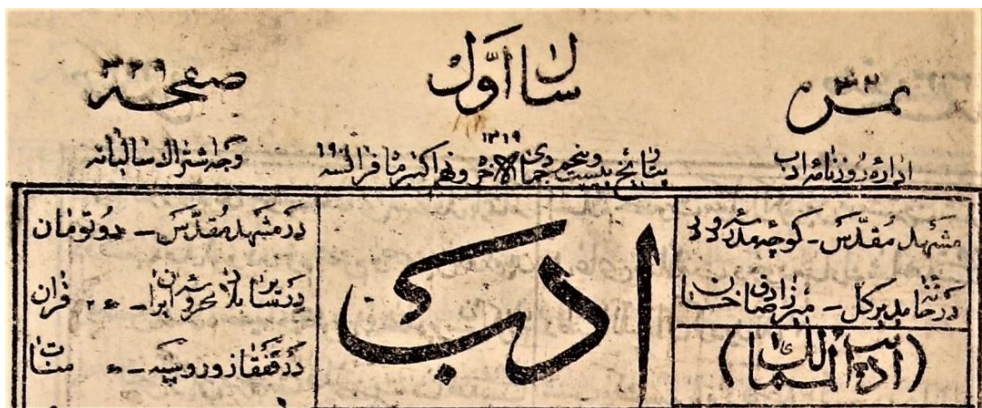 نمره ۳۲
سال اوّل
صفحه ۲۴۹
اداره روزنامه ادب
بتاریخ بیست و پنجم جمادی الاخره ۱۳۱۹ و نهم اکتبر ماه فرانسه ۱۹۰۱
وجه اشتراک سالیانه
مشهد مقدّس - کوچه مدرسه دو در
در خانه مدیر کل - میرزا صادق خان
(ادیب الممالک)
ادب
در مشهد مقدّس - دو تومان
در سایر بلدان محروسه ایران - قران
در قفقاز و روسیه - منات